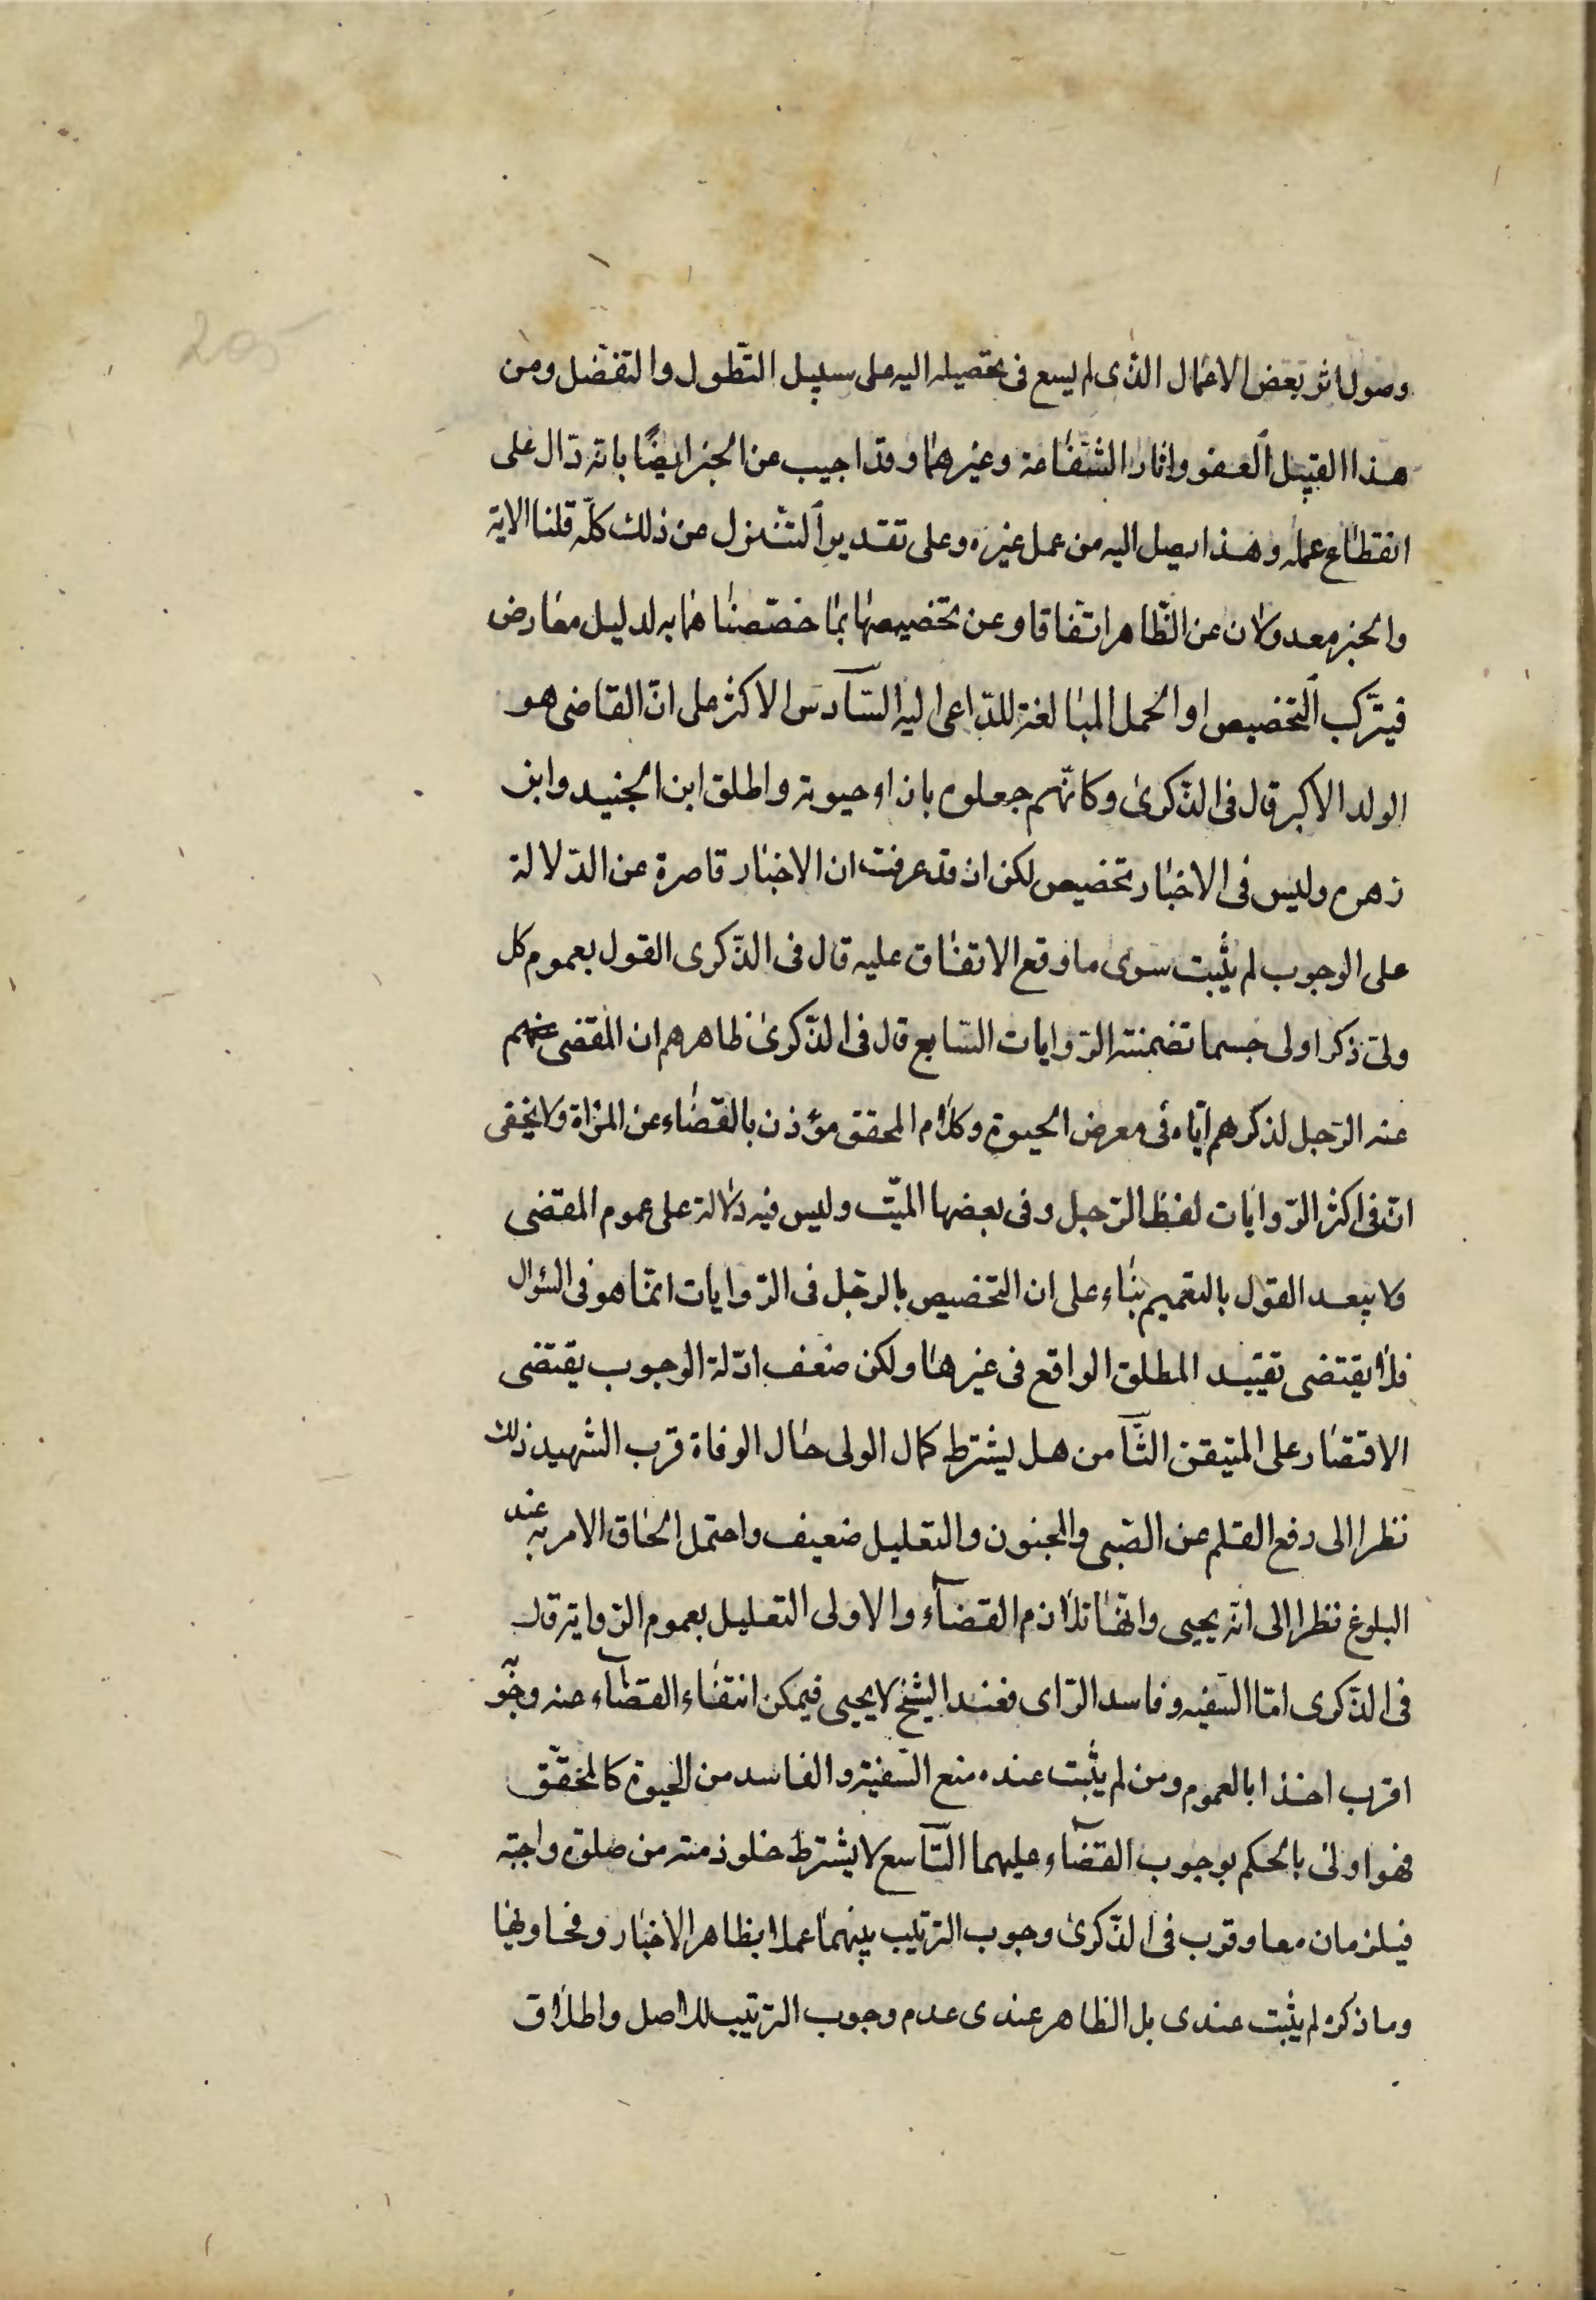 وصول اثر بعض الاعمال الذى لم يسع فى تحصيله اليه على سبيل التطول والتفضل ومن
هذا القبيل العفو واثار الشفاعة وغيرهما وقد اجيب عن الخبر ايضًا بانه دال على
انقطاع عمله وهذا يصل اليه من عمل غيره وعلى تقدير التنزل عن ذلك كلّه قلنا الاية
والخبر معدولان عن الظاهر اتفاقا وعن تخصيصها بما خصّصناهما به لدليل معارض
فيتركب التخصيص او الحمل المبالغة للداعى اليه السّادس الاكثر على انّ القاضى هو
الولد الاكبر قال فى الذّكرى وكانّهم جعلوه بازاء حبوته واطلق ابن الجنيد وابن
زهره وليس فى الاخبار تخصيص لكن ان قد عرفت ان الاخبار قاصرة عن الدّلالة
على الوجوب لم يثبت سوى ما وقع الاتفاق عليه قال فى الذّكرى القول بعموم كل
ولىّ ذكر اولى حسما تضمنته الرّوايات السّابع قال فى الذّكرى ظاهرهم ان المقضى عنهم
عنه الرّجل لذكرهم ايّاه فى معرض الحبوة وكلام المحقق مؤذن بالقضاء عن المرْاة ولا يخفى
انّ فى اكثر الرّوايات لفظ الرّجل وفى بعضها الميّت وليس فيه دلالة على عموم المقضى
ولا يبعد القول بالتعميم بناء على ان التخصيص بالرجل فى الرّوايات انمّا هو فى السؤال
فلا يقتضى تقييد المطلق الواقع فى غيرها ولكن ضعف ادّلة الوجوب يقتضى
الاقتصار على المتيقن الثّامن هل يشترط كمال الولى حال الوفاة قرب الشهيد ذلك
نظرا الى رفع القلم عن الصّبى والمجنون والتعليل ضعيف واحتمل الحاق الامر به عند
البلوغ نظرا الى انه يحبى وانّها تلازم القضآء والاولى التعليل بعموم الرّواية قال
فى الذّكرى امّا السّفيه وفاسد الرّاى فعند الشيخ لا يحبى فيمكن انتفاء القضآء عنه وجوّ
اقرب اخذا بالعموم ومن لم يثبت عنده منع السّفيه والفاسد من الحبوة كالمحقّق
فهو اولى بالحكم بوجوب القضآء عليهما التّاسع لا يشترط خلو ذمته من صلوة واجبة
فيلزمان معا وقرب فى الذّكرى وجوب الترتيب بينهما عملا بظاهر الاخبار وفحاويها
وما ذكره لم يثبت عندى بل الظاهر عندى عدم وجوب الترتيب للاصل واطلاق